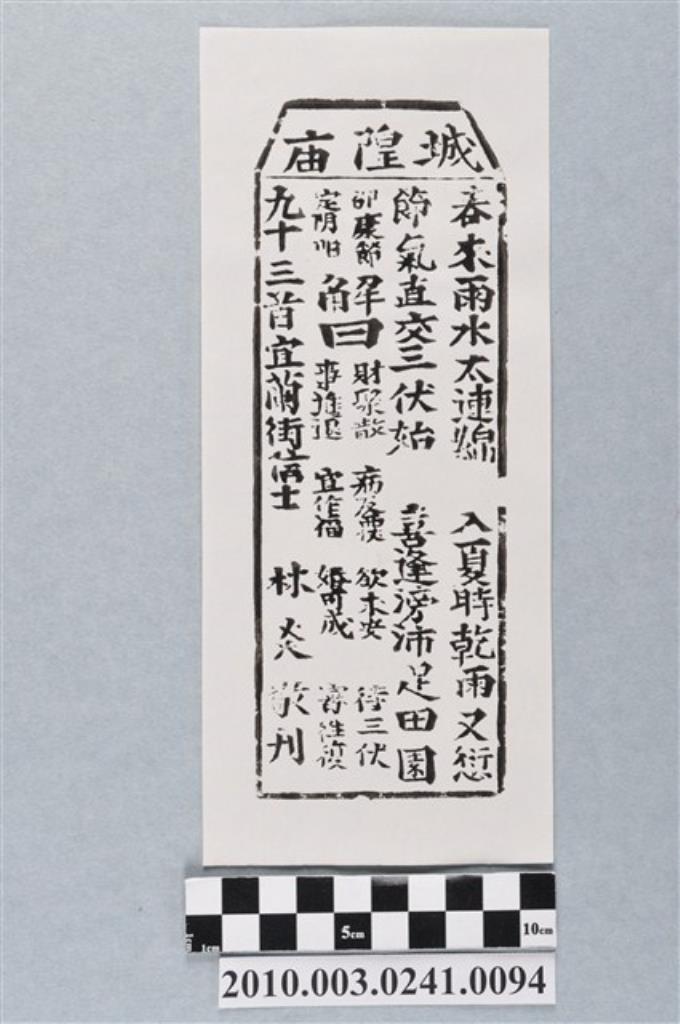 城隍庙
春來雨水太連綿 入夏時乾雨又愆
節氣直交三伏始 喜逢滂沛足田園
邵康節 定阴阳 解曰 財聚散 事進退 病反覆 宜作福 欲求安 婚可成 待三伏 審往復
九十三首宜蘭街信士 林炎敬刊
5cm
10cm
1cm
2010.003.0241.0094